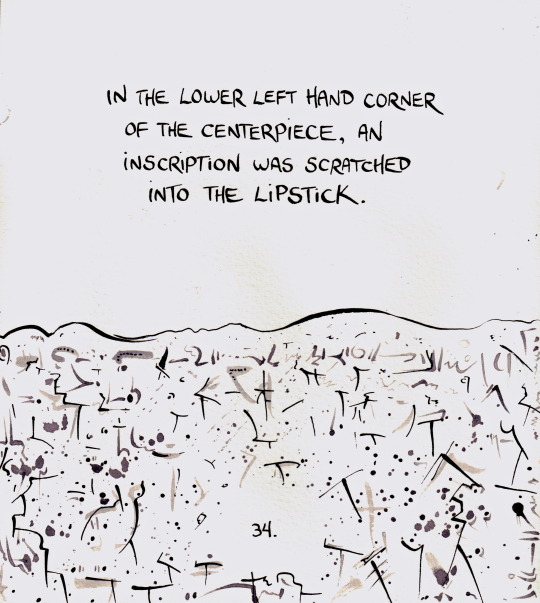 IN THE LOWER LEFT HAND CORNER
OF THE CENTERPIECE, AN
INSCRIPTION WAS SCRATCHED
INTO THE LIPSTICK.
34.